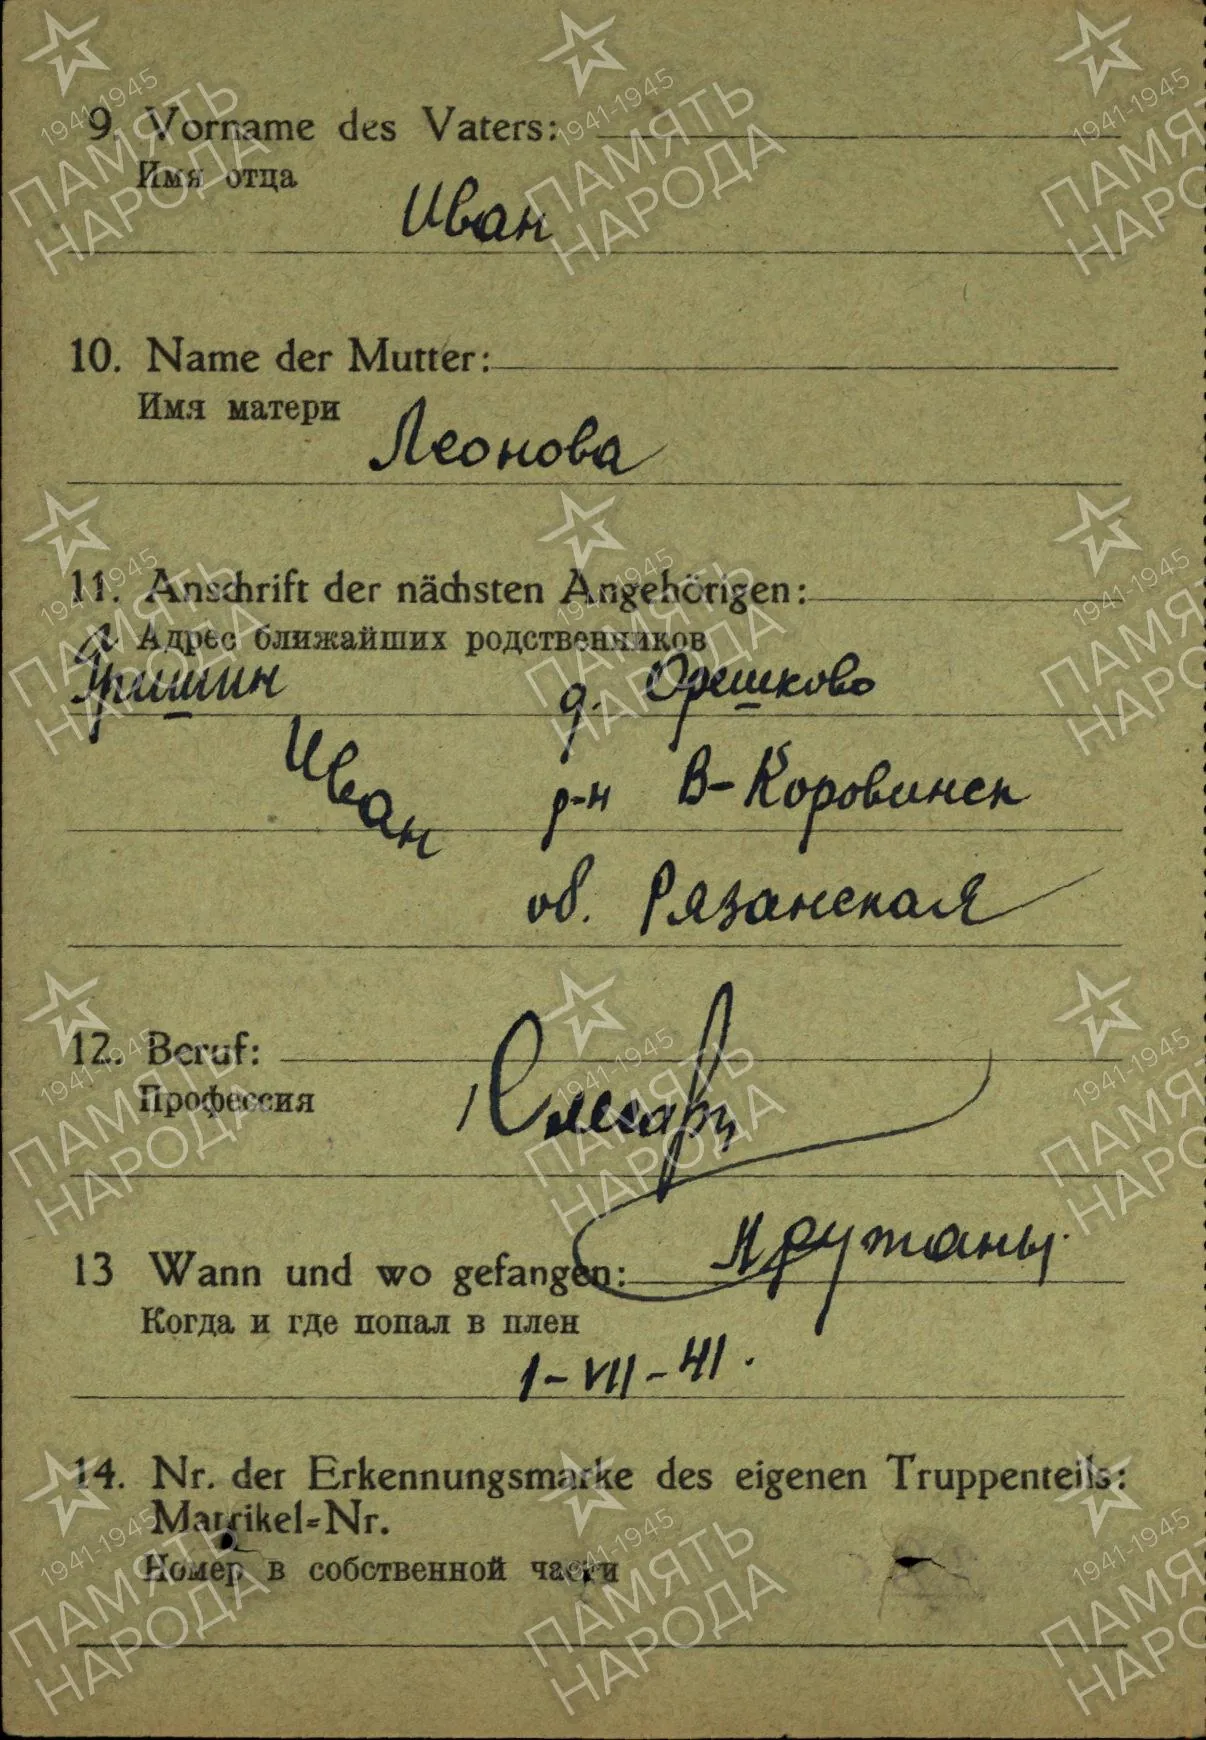 9. Vorname des Vaters:
Имя отца
Иван
10. Name der Mutter:
Имя матери
Леонова
11. Anschrift der nächsten Angehörigen:
Адрес ближайших родственников
Гришин д. Орешково
Иван р-н В-Коровинск
об. Рязанская
12. Beruf:
Профессия
Слесарь
13 Wann und wo gefangen: Пружаны.
Когда и где попал в плен
1-VII-41.
14. Nr. der Erkennungsmarke des eigenen Truppenteils:
Matrikel=Nr.
Номер в собственной части
1941-1945
ПАМЯТЬ
НАРОДА